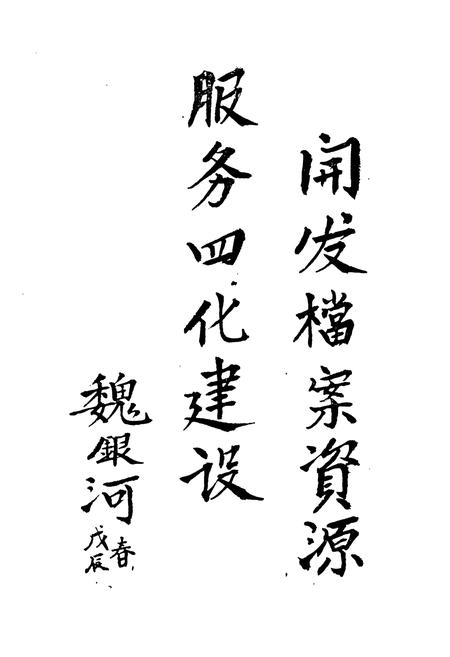 开发檔案資源
服务四化建设
魏銀河
戊辰春